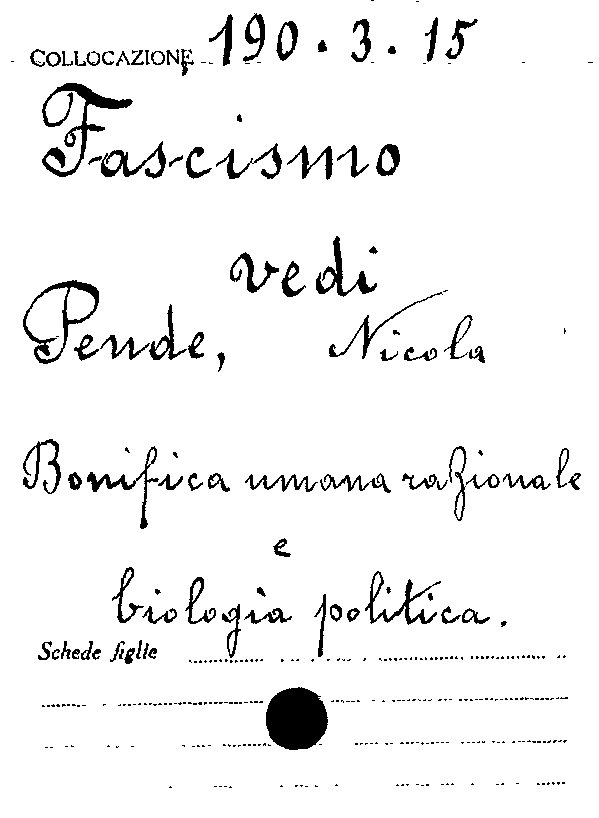 COLLOCAZIONE 190.3.15
Fascismo
vedi
Pende, Nicola
Bonifica umana razionale
e
biologia politica.
Schede figlie